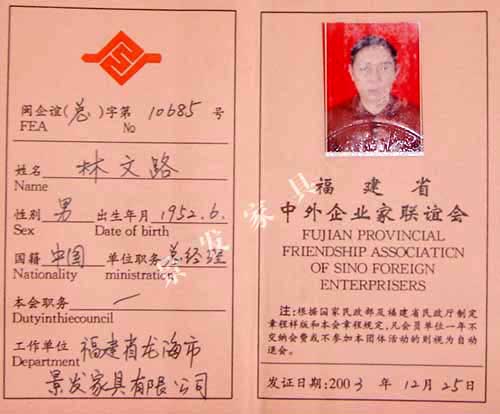 闽企谊(总)字第 10685 号
FEA No
姓名 林文路
Name
性别 男 出生年月 1952.6.
Sex Date of birth
国籍 中国 单位职务 总经理
Nationality ministration
本会职务 一
Dutyinthiecouncil
工作单位 福建省龙海市
Department
景发家具有限公司
福建省
中外企业家联谊会
FUJIAN PROVINCIAL
FRIENDSHIP ASSOCIATION
OF SINO FOREIGN
ENTERPRISERS
注:根据国家民政部及福建省民政厅制定
章程样版和本会章程规定,凡会员单位一年不
交纳会费或不参加本团体活动的则视为自动
退会。
发证日期:2003 年 12 月 25 日
景发家具